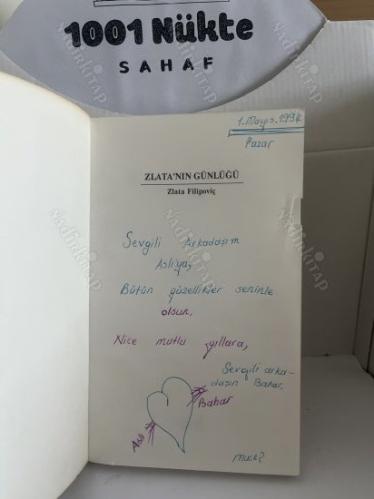 1001 Nükte
SAHAF
1.Mayıs.1994
Pazar
ZLATA'NIN GÜNLÜĞÜ
Zlata Filipoviç
Sevgili Arkadaşım
Aslıya,
Bütün güzellikler seninle
olsun.
Nice mutlu yıllara,
Sevgili arka-
daşın Bahar.
Bahar
Aslı
nadirkitap